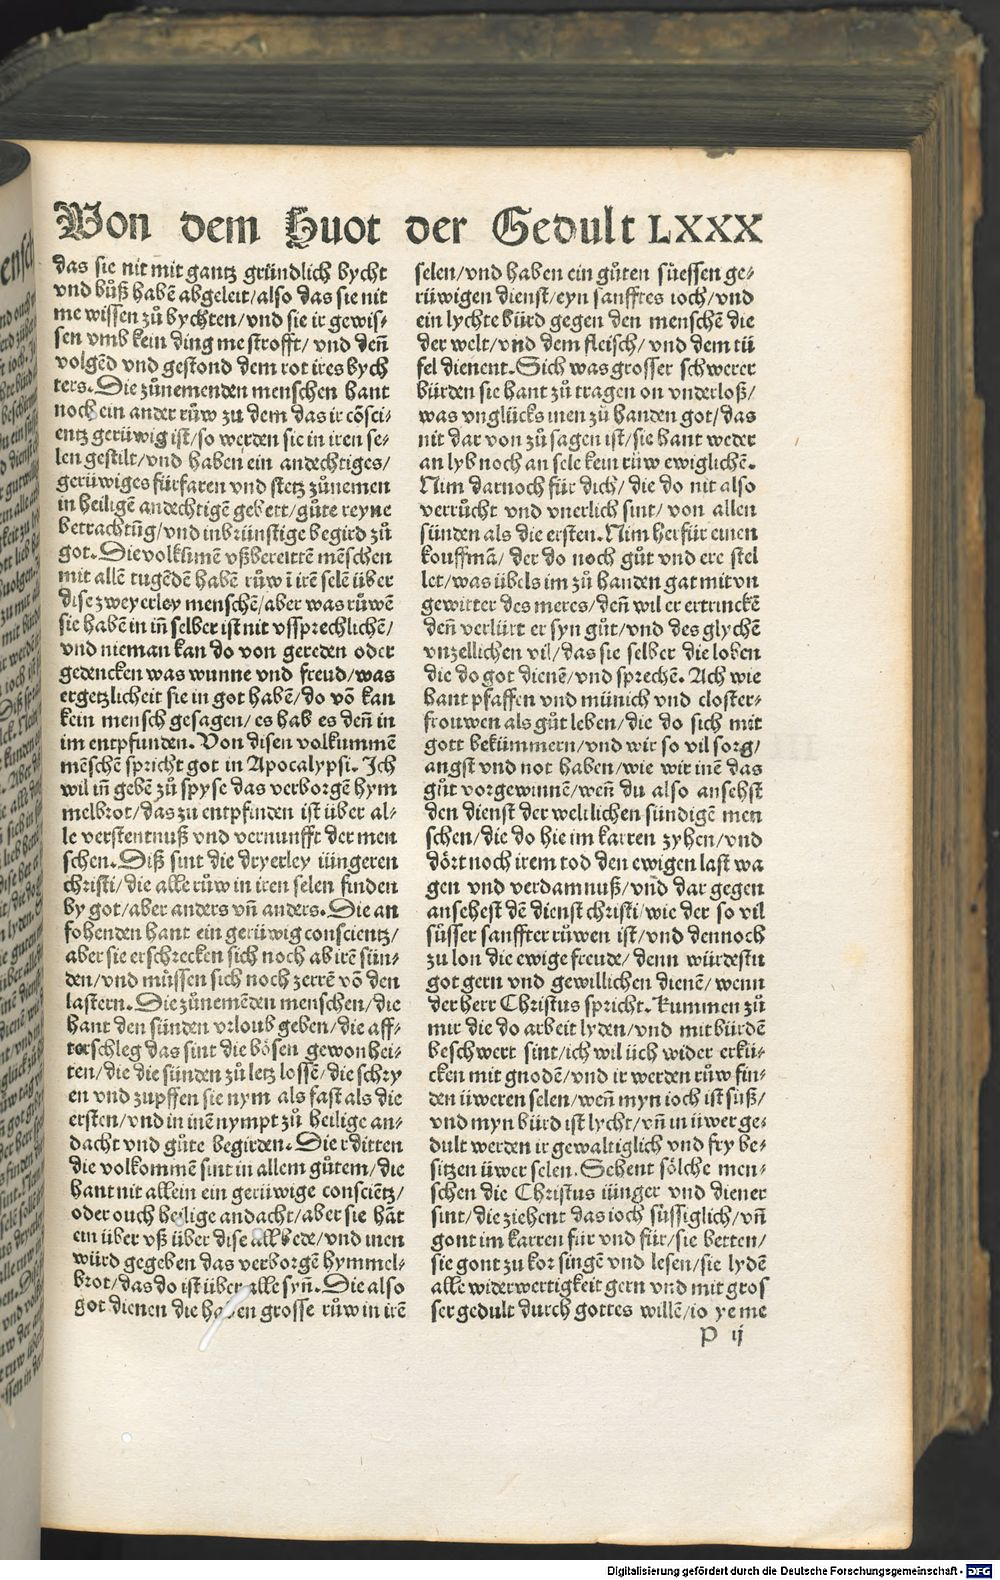 Von dem Huot der Gedult LXXX
das sie nit mit gantz gründlich bycht
vnd buͦß habē abgeleit/also das sie nit
me wissen zuͦ bychten/vnd sie ir gewis-
sen vmb kein ding me strofft/ vnd den̄
volgēd vnd gestond dem rot ires bych
ters. Die zuͦnemenden menschen hant
noch ein ander ruͦw zu dem das ir cōsci-
entz geruͤwig ist/so werden sie in iren se-
len gestilt/vnd haben ein andechtiges/
geruͤwiges fürfaren vnd stetz zuͦnemen
in heiligē andechtigē gebett/guͦte reyne
betrachtūg/vnd inbrünstige begird zuͦ
got. Die volkūmē vßbereittē mēschen
mit allē tugēdē habē ruͦw ī irē selē über
dise zweyerley menschē/aber was ruͦwē
sie habē in in̄ selber ist nit vssprechlichē/
vnd nieman kan do von gereden oder
gedencken was wunne vnd freud/was
ergetzlicheit sie in got habē/do vō kan
kein mensch gesagen/ es hab es den̄ in
im entpfunden. Von disen volkummē
mēschē spricht got in Apocalypsi. Ich
wil in̄ gebē zuͦ spyse das verborgē hym
melbrot/das zu entpfinden ist über al-
le verstentnuß vnd vernunfft der men
schen. Diß sint die dryerley iüngeren
christi/die alle ruͦw in iren selen finden
by got/aber anders vn̄ anders. Die an
fohenden hant ein geruͤwig conscientz/
aber sie erschrecken sich noch ab irē sün-
den/vnd muͤssen sich noch zerrē vō den
lastern. Die zuͦnemēden menschen/die
hant den sünden vrloub geben/die aff-
terschleg das sint die boͤsen gewonhei-
ten/die die sünden zuͦ letz lossē/die schry
en vnd zupffen sie nym als fast als die
ersten/vnd in inē nympt zuͦ heilige an-
dacht vnd guͦte begirden. Die dritten
die volkommē sint in allem guͦtem/die
hant nit allein ein geruͤwige consciētz/
oder ouch heilige andacht/aber sie hāt
ein über vß über dise all bede/vnd inen
würd gegeben das verborgē hymmel-
brot/das do ist über alle syn̄. Die also
got dienen die haben grosse ruͦw in irē
selen/vnd haben ein guͦten suͤessen ge-
ruͤwigen dienst/eyn sanfftes ioch/vnd
ein lychte bürd gegen den menschē die
der welt/vnd dem fleisch/vnd dem tü
fel dienent. Sich was grosser schwerer
bürden sie hant zuͦ tragen on vnderloß/
was vnglücks inen zuͦ handen got/das
nit dar von zuͦ sagen ist/sie hant weder
an lyb noch an sele kein ruͦw ewiglichē.
Nim darnoch für dich/die do nit also
verruͦcht vnd vnerlich sint/ von allen
sünden als die ersten. Nim herfür einen
kouffmā/ der do noch guͦt vnd ere stel
let/was übels im zuͦ handen gat mit vn
gewitter des meres/den̄ wil er ertrinckē
den̄ verlürt er syn guͦt/vnd des glychē
vnzellichen vil/das sie selber die loben
die do got dienē/vnd sprechē. Ach wie
hant pfaffen vnd münich vnd closter-
frouwen als guͦt leben/die do sich mit
gott bekümmern/vnd wir so vil sorg/
angst vnd not haben/wie wir inē das
guͦt vorgewinnē/wen̄ du also ansehst
den dienst der weltlichen sündigē men
schen/die do hie im karren zyhen/vnd
doͤrt noch irem tod den ewigen last wa
gen vnd verdamnuß/vnd dar gegen
ansehest dē dienst christi/wie der so vil
suͤsser sanffter ruͦwen ist/vnd dennoch
zu lon die ewige freude/ denn würdestu
got gern vnd gewillichen dienē/wenn
der herr Christus spricht. Kummen zuͦ
mir die do arbeit lyden/vnd mit bürdē
beschwert sint/ich wil üch wider erkü-
cken mit gnodē/vnd ir werden ruͦw fin-
den üweren selen/wen̄ myn ioch ist suͤß/
vnd myn bürd ist lycht/vn̄ in üwer ge-
dult werden ir gewaltiglich vnd fry be-
sitzen üwer selen. Sehent soͤlche men-
schen die Christus iünger vnd diener
sint/die ziehent das ioch suͤssiglich/vn̄
gont im karren für vnd für/sie betten/
sie gont zu kor singē vnd lesen/sie lydē
alle widerwertigkeit gern vnd mit gros
ser gedult durch gottes willē/io ye me
P ij
Digitalisierung gefördert durch die Deutsche Forschungsgemeinschaft - DFG